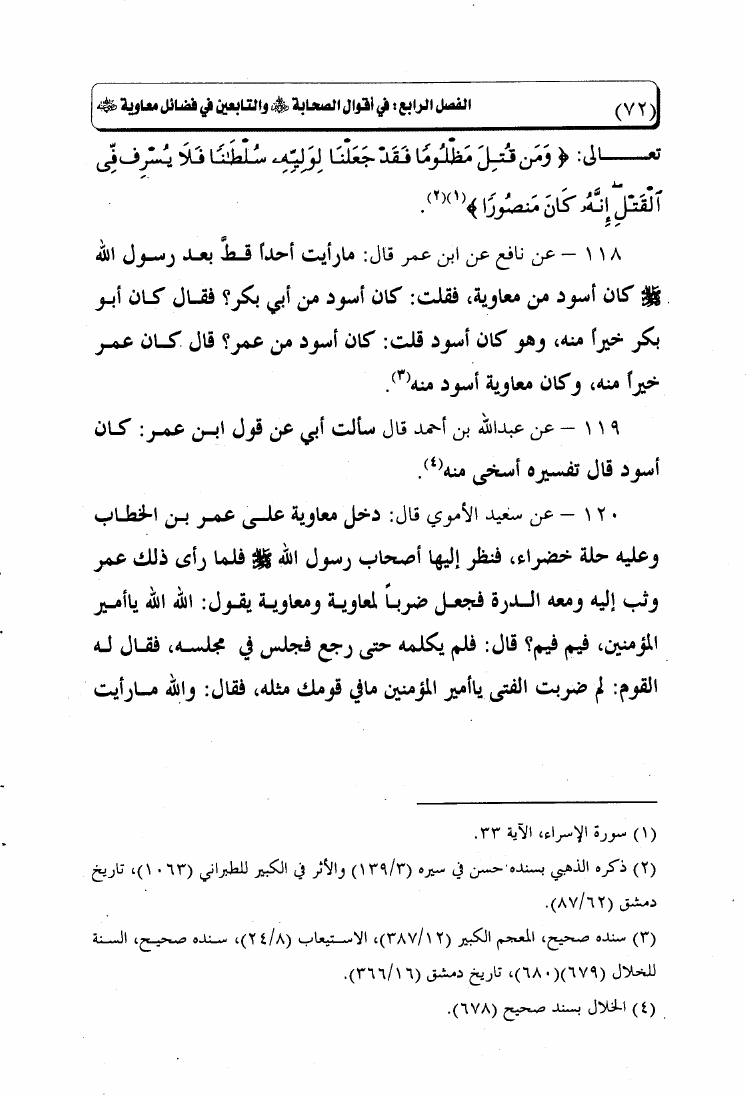 (٧٢) الفصل الرابع: في أقوال الصحابة ﷺ والتابعين في فضائل معاوية ﷺ
تعــــــالى: ﴿ وَمَن قُتِلَ مَظْلُومًا فَقَدْ جَعَلْنَا لِوَلِيِّهِۦ سُلْطَـٰنًا فَلَا يُسْرِف فِّى
ٱلْقَتْلِ ۖ إِنَّهُۥ كَانَ مَنصُورًا ﴾(١)(٢).
١١٨ – عن نافع عن ابن عمر قال: مارأيت أحداً قطَّ بعد رسول الله
ﷺ كان أسود من معاوية، فقلت: كان أسود من أبي بكر؟ فقال كان أبو
بكر خيراً منه، وهو كان أسود قلت: كان أسود من عمر؟ قال كان عمر
خيراً منه، وكان معاوية أسود منه(٣).
١١٩ – عن عبدالله بن أحمد قال سألت أبي عن قول ابن عمر: كان
أسود قال تفسيره أسخى منه(٤).
١٢٠ – عن سعيد الأموي قال: دخل معاوية على عمر بن الخطاب
وعليه حلة خضراء، فنظر إليها أصحاب رسول الله ﷺ فلما رأى ذلك عمر
وثب إليه ومعه الدرة فجعل ضرباً لمعاوية ومعاوية يقول: الله الله ياأمير
المؤمنين، فيم فيم؟ قال: فلم يكلمه حتى رجع فجلس في مجلسه، فقال له
القوم: لم ضربت الفتى ياأمير المؤمنين مافي قومك مثله، فقال: والله مارأيت
(١) سورة الإسراء، الآية ٣٣.
(٢) ذكره الذهبي بسنده حسن في سيره (١٣٩/٣) والأثر في الكبير للطبراني (١٠٦٣)، تاريخ
دمشق (٨٧/٦٢).
(٣) سنده صحيح، المعجم الكبير (٣٨٧/١٢)، الاستيعاب (٢٤/٨)، سنده صحيح، السنة
للخلال (٦٧٩)(٦٨٠)، تاريخ دمشق (٣٦٦/١٦).
(٤) الخلال بسند صحيح (٦٧٨).